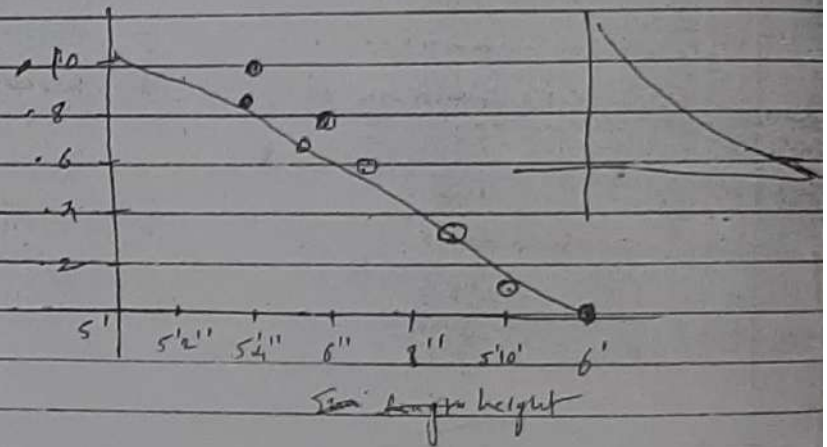 1.0
.8
.6
.4
.2
5' 5'2" 5'4" 6" 8" 5'10' 6'
height